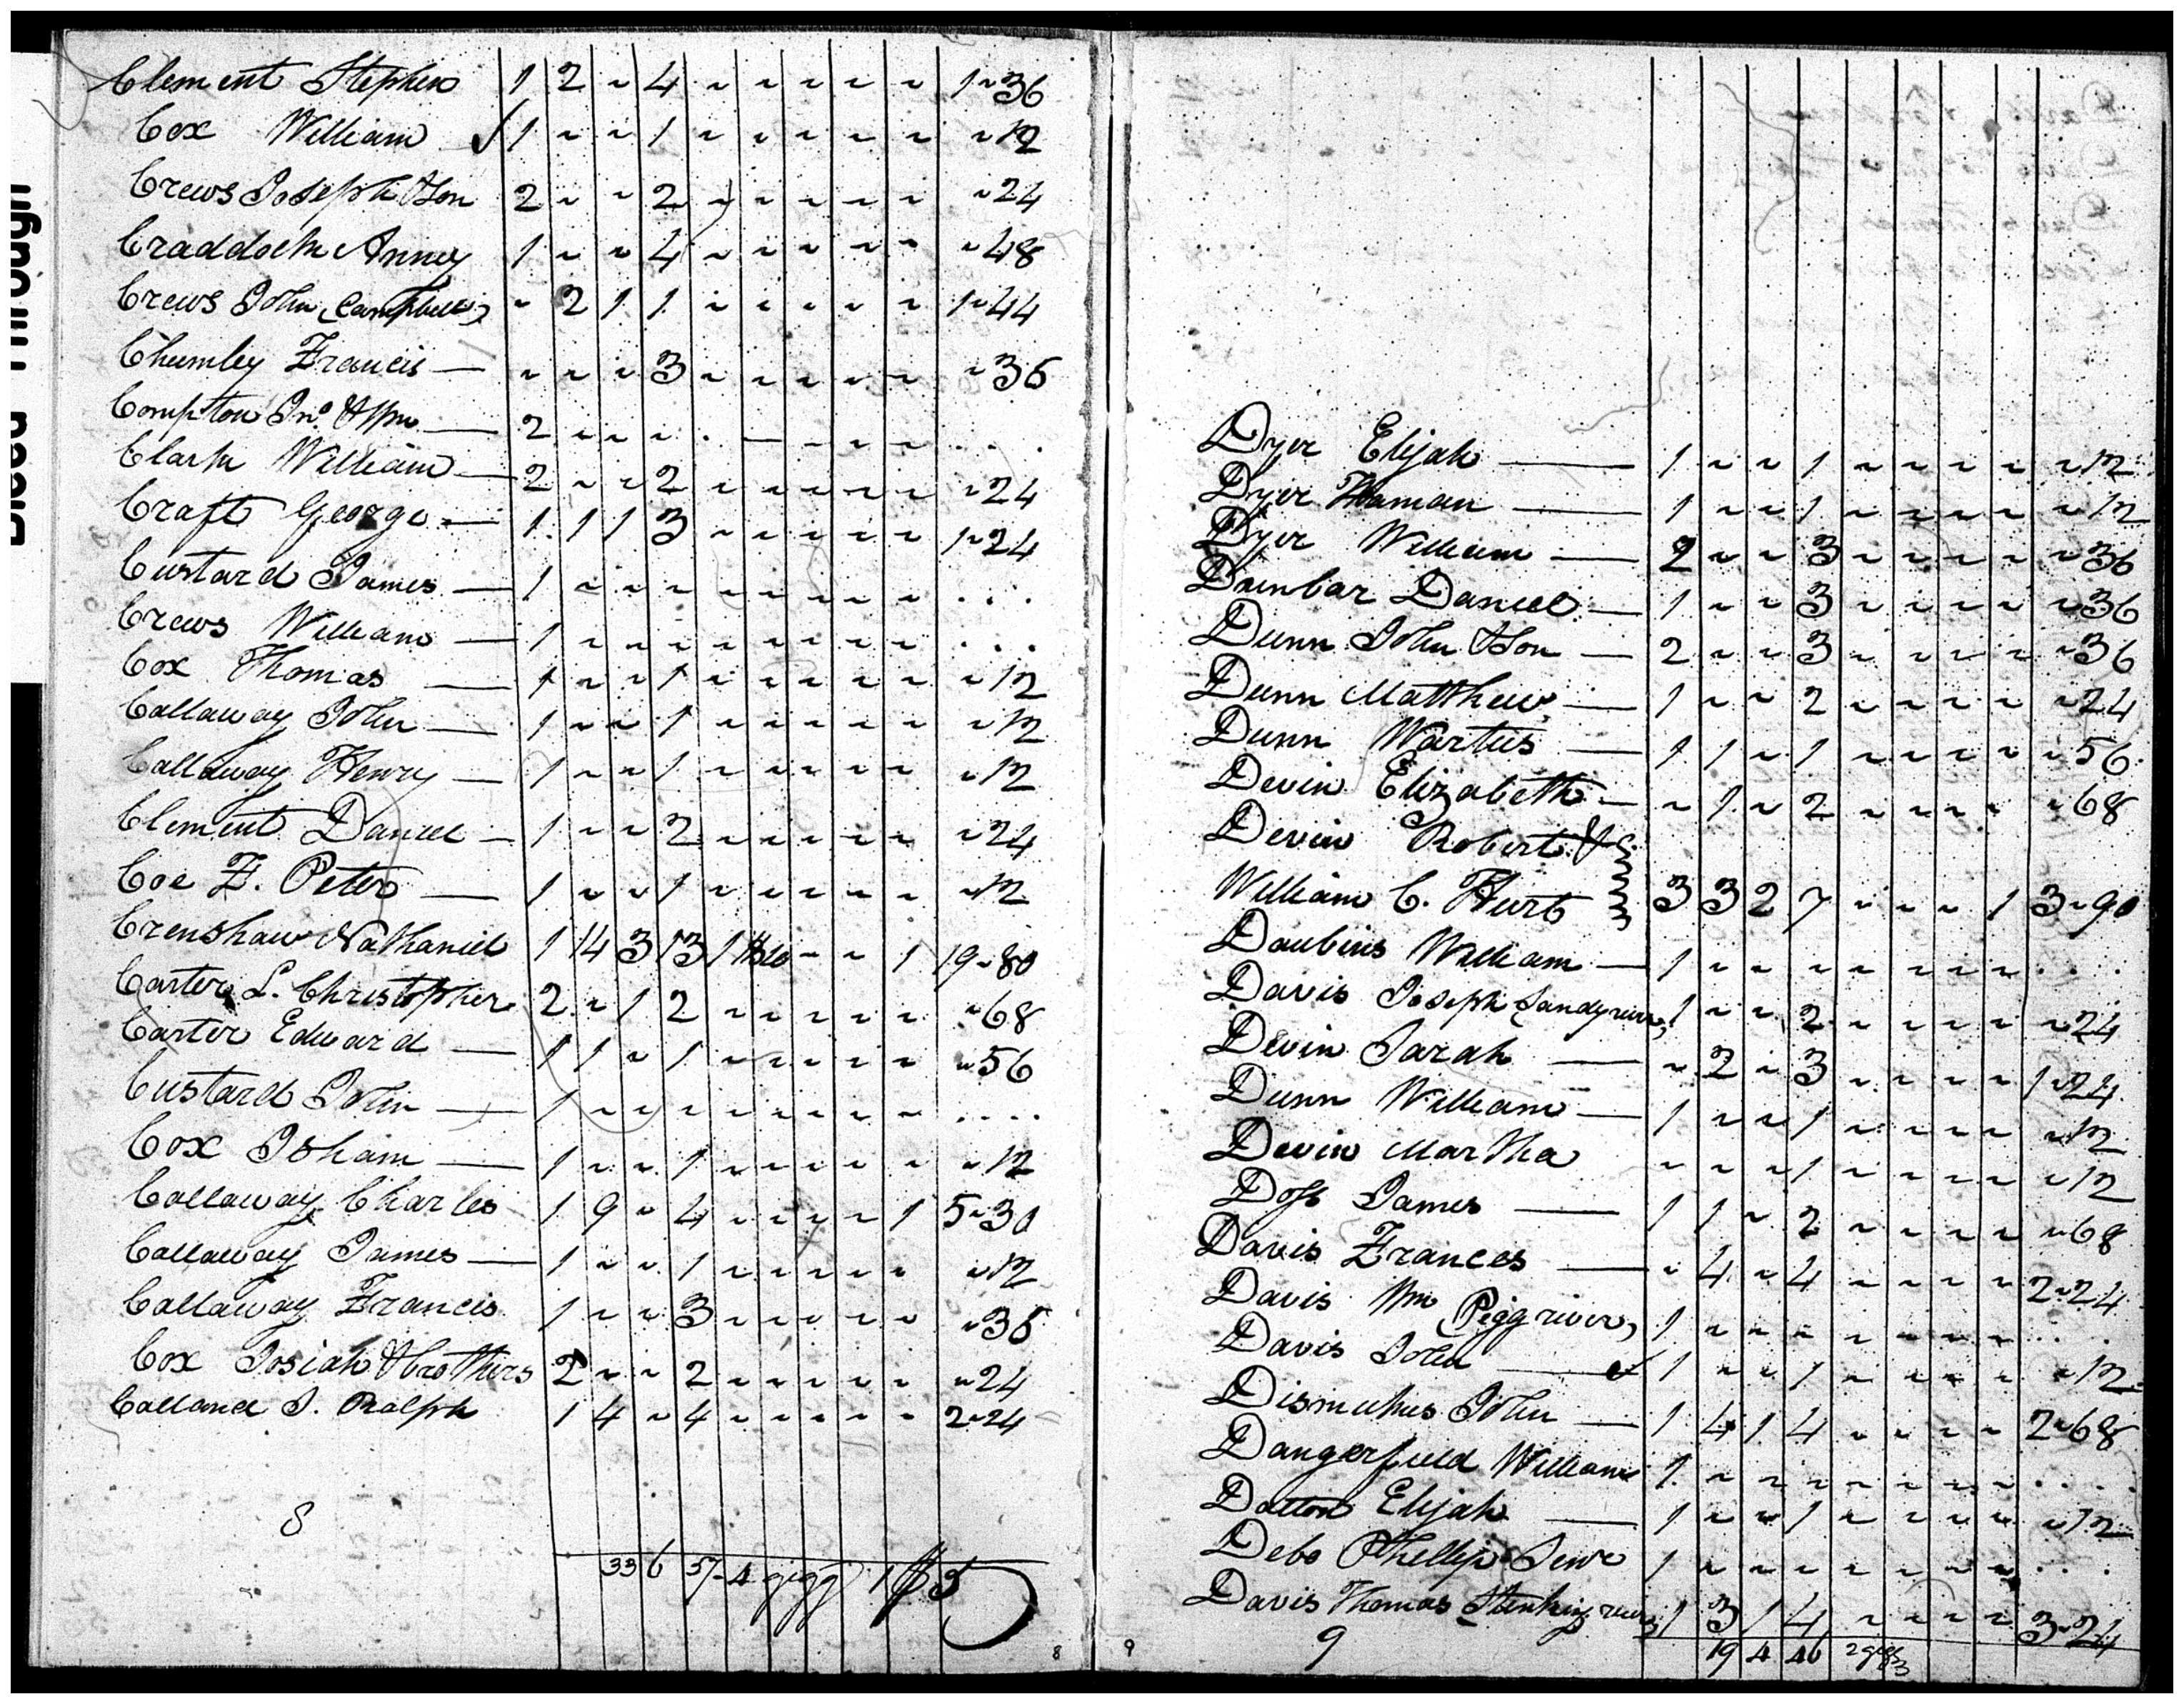 Clement Stephen 1 2 ~ 4 ~ ~ ~ ~ ~ 1~36
Cox William √ 1 ~ ~ 1 ~ ~ ~ ~ ~ ~12
Crews Joseph & Son 2 ~ ~ 2 ~ ~ ~ ~ ~ ~24
Craddock Anney 1 ~ ~ 4 ~ ~ ~ ~ ~ ~48
Crews John (Campbell) ~ 2 1 1 ~ ~ ~ ~ ~ 1~44
Chumley Francis — ~ ~ ~ 3 ~ ~ ~ ~ ~ ~36
Compton Jno & Wm — 2 ~ ~ ~ . — ~ ~ ~ . . .
Clark William — 2 ~ ~ 2 ~ ~ ~ ~ ~ ~24
Craft George — 1 1 1 3 ~ ~ ~ ~ ~ 1~24
Custard James — 1 ~ ~ ~ ~ ~ ~ ~ ~ . . .
Crews William — 1 ~ ~ ~ ~ ~ ~ ~ ~ . . .
Cox Thomas — 1 ~ ~ 1 ~ ~ ~ ~ ~ ~12
Callaway John — 1 ~ ~ 1 ~ ~ ~ ~ ~ ~12
Callaway Henry — 1 ~ ~ 1 ~ ~ ~ ~ ~ ~12
Clement Daniel — 1 ~ ~ 2 ~ ~ ~ ~ ~ ~24
Coe F. Peter — 1 ~ ~ 1 ~ ~ ~ ~ ~ ~12
Crenshaw Nathaniel 1 14 3 13 1 ~ ~ 1 19~80
Carter L. Christopher 2 ~ 1 2 ~ ~ ~ ~ ~ ~68
Carter Edward — 1 1 ~ 1 ~ ~ ~ ~ ~ ~56
Custard John — 1 ~ ~ ~ ~ ~ ~ ~ ~ . . . .
Cox Isham — 1 ~ ~ 1 ~ ~ ~ ~ ~ ~12
Callaway Charles 1 9 ~ 4 ~ ~ ~ ~ 1 5~30
Callaway James — 1 ~ ~ 1 ~ ~ ~ ~ ~ ~12
Callaway Francis 1 ~ ~ 3 ~ ~ ~ ~ ~ ~36
Cox Josiah & brothers 2 ~ ~ 2 ~ ~ ~ ~ ~ ~24
Calland S. Ralph 1 4 ~ 4 ~ ~ ~ ~ ~ 2~24
8
33 6 57 - 4 gigg 1
8
Dyer Elijah — 1 ~ ~ 1 ~ ~ ~ ~ ~12
Dyer Haman — 1 ~ ~ 1 ~ ~ ~ ~ ~12
Dyer William — 2 ~ ~ 3 ~ ~ ~ ~ ~36
Dunbar Daniel — 1 ~ ~ 3 ~ ~ ~ ~ ~36
Dunn John & Son — 2 ~ ~ 3 ~ ~ ~ ~ ~36
Dunn Matthew — 1 ~ ~ 2 ~ ~ ~ ~ ~24
Dunn Wartus — 1 1 ~ 1 ~ ~ ~ ~ ~56
Devin Elizabeth — ~ 1 ~ 2 ~ ~ ~ ~ ~68
Devin Robert &
William C. Hurt 3 3 2 7 ~ ~ ~ 1 3~90
Daubins William — 1 ~ ~ ~ ~ ~ ~ ~ . . . .
Davis Joseph (Sandy river) 1 ~ ~ 2 ~ ~ ~ ~ ~24
Devin Sarah — ~ 2 ~ 3 ~ ~ ~ ~ 1~24
Dunn William — 1 ~ ~ 1 ~ ~ ~ ~ ~12
Devin Martha ~ ~ ~ 1 ~ ~ ~ ~ ~12
Doss James — 1 1 ~ 2 ~ ~ ~ ~ ~68
Davis Frances — ~ 4 ~ 4 ~ ~ ~ ~ 2~24
Davis Wm (Pigg river) 1 ~ ~ ~ ~ ~ ~ ~ . . .
Davis John — 1 ~ ~ 1 ~ ~ ~ ~ ~12
Dismukes John — 1 4 1 4 ~ ~ ~ ~ 2~68
Dangerfield William 1 ~ ~ ~ ~ ~ ~ ~ . . . .
Dalton Elijah — 1 ~ ~ 1 ~ ~ ~ ~ ~12
Debo Phillip Senr 1 ~ ~ ~ ~ ~ ~ ~ . . .
Davis Thomas 1 3 1 4 ~ ~ ~ ~ 3~24
9
19 4 46 2 gigs
9